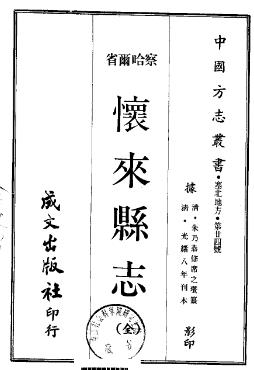 中國方志叢書·塞北地方·第廿四號
據
清·朱乃恭修席之瓚纂
清·光緒八年刊本
影印
察哈爾省
懷來縣志
(全)
成文出版社印行